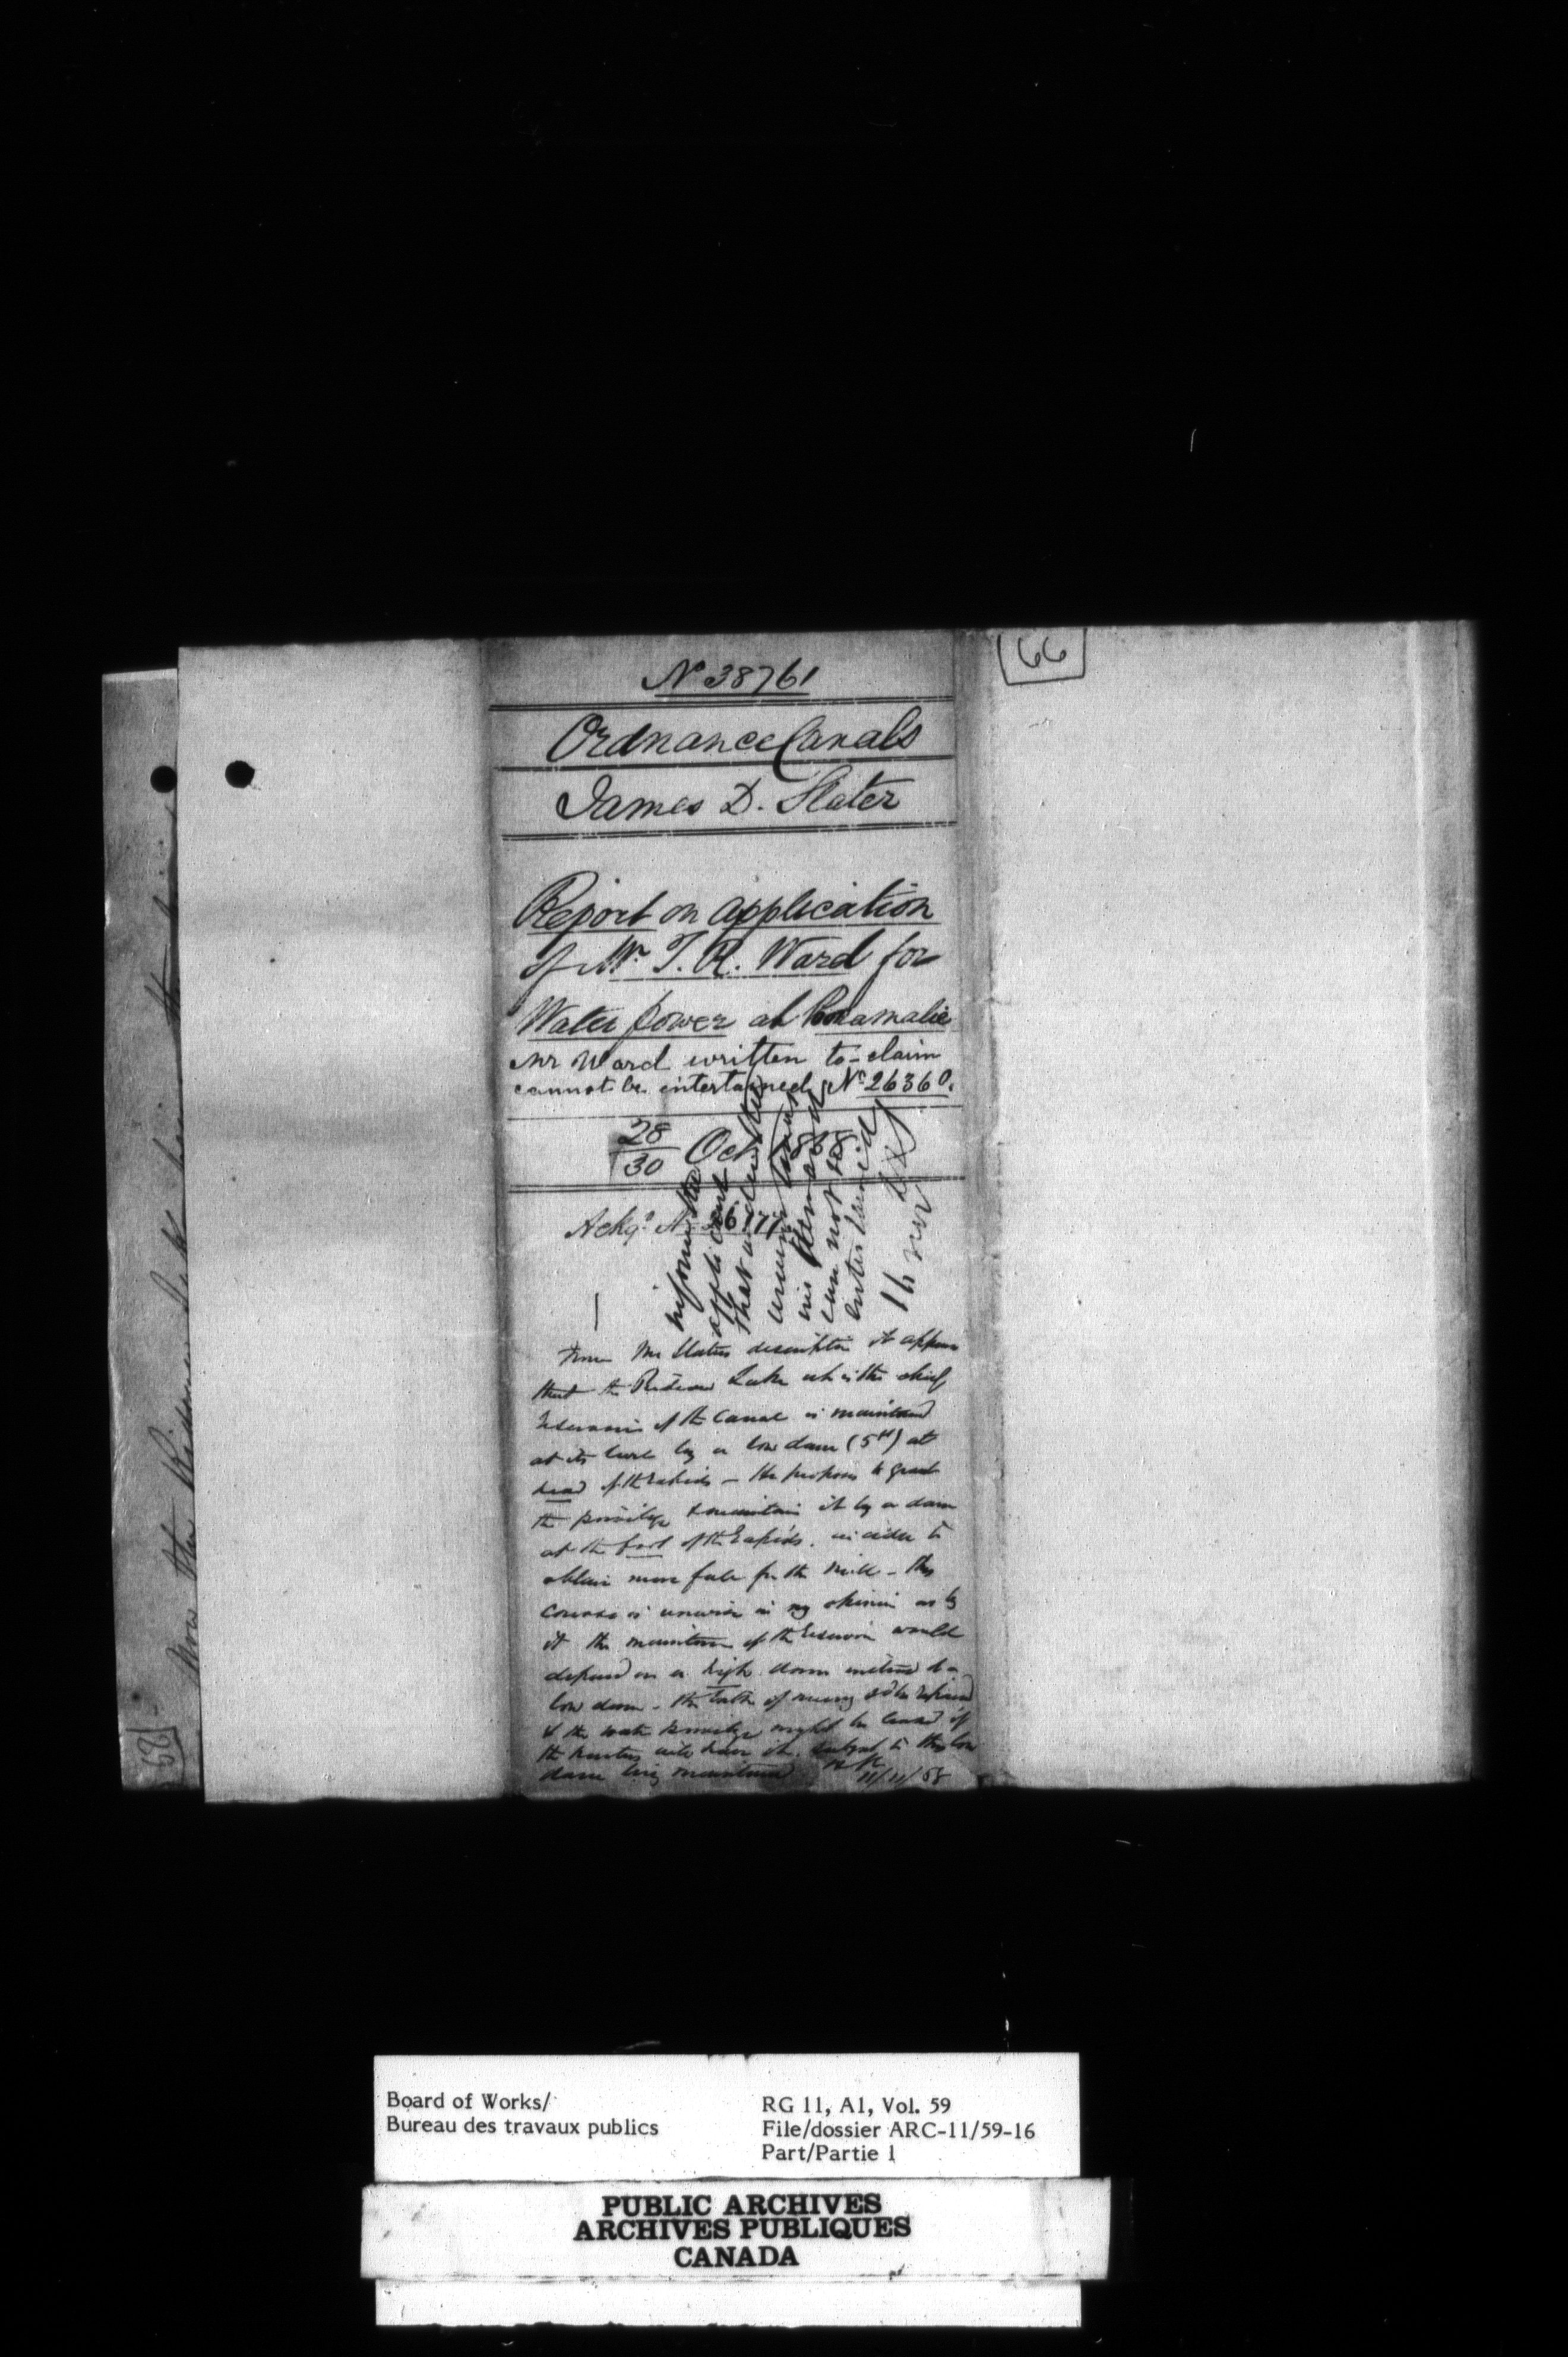 66
No 38761
Ordnance Canals
James D. Slater
Report on application
of Mr. T. R. Ward for
Water power at Poonamalie
Mr Ward written to - claim
cannot be entertained No 26360.
28
30 Oct 1858
Ackg. No
inform the
applicant
that under the
circumstances
his demand
can not be
entertained
16 Nov
From Mr Slaters description it appears
that the Rideau Lake wh is the chief
reservoir of the Canal is maintained
at its level by a low dam (5 ft) at
head of the rapids - He proposes to grant
the privilege & maintain it by a dam
at the foot of the rapids, in order to
obtain more fall for the mill - this
course is unwise in my opinion as by
it the maintce of the reservoir would
depend on a high dam instead of a
low dam - the
& the water privilege might be leased if
the parties will have it, subject to the low
dam being maintained
11/11/58
Board of Works/
Bureau des travaux publics
RG 11, A1, Vol. 59
File/dossier ARC-11/59-16
Part/Partie 1
PUBLIC ARCHIVES
ARCHIVES PUBLIQUES
CANADA